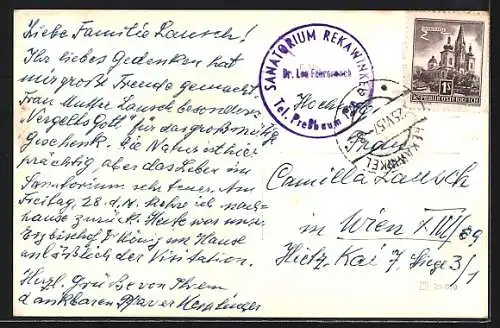 Liebe Familie Lausch!
Ihr liebes Gedenken hat
mir große Freude gemacht,
Frau Mutter Lausch besonderes
"Vergelts Gott" für das großmütige
Geschenk. Die Natur ist hier
prächtig aber das Leben im
Sanatorium sehr teuer. Am
Freitag, 28. d. M. kehre ich nach-
hause zurück. Heute war unser
Erzbischof Dr König im Hause
anläßlich der Visitation.
Herzl. Grüße von Ihrem
dankbaren Pfarrer
SANATORIUM REKAWINKEL
Dr. Leo
Tel. Preßbaum
REPUBLIK ÖSTERREICH
REKAWINKEL
Camilla Lausch
in Wien XIII/89
Hietz. Kai 7, Stiege 3/1